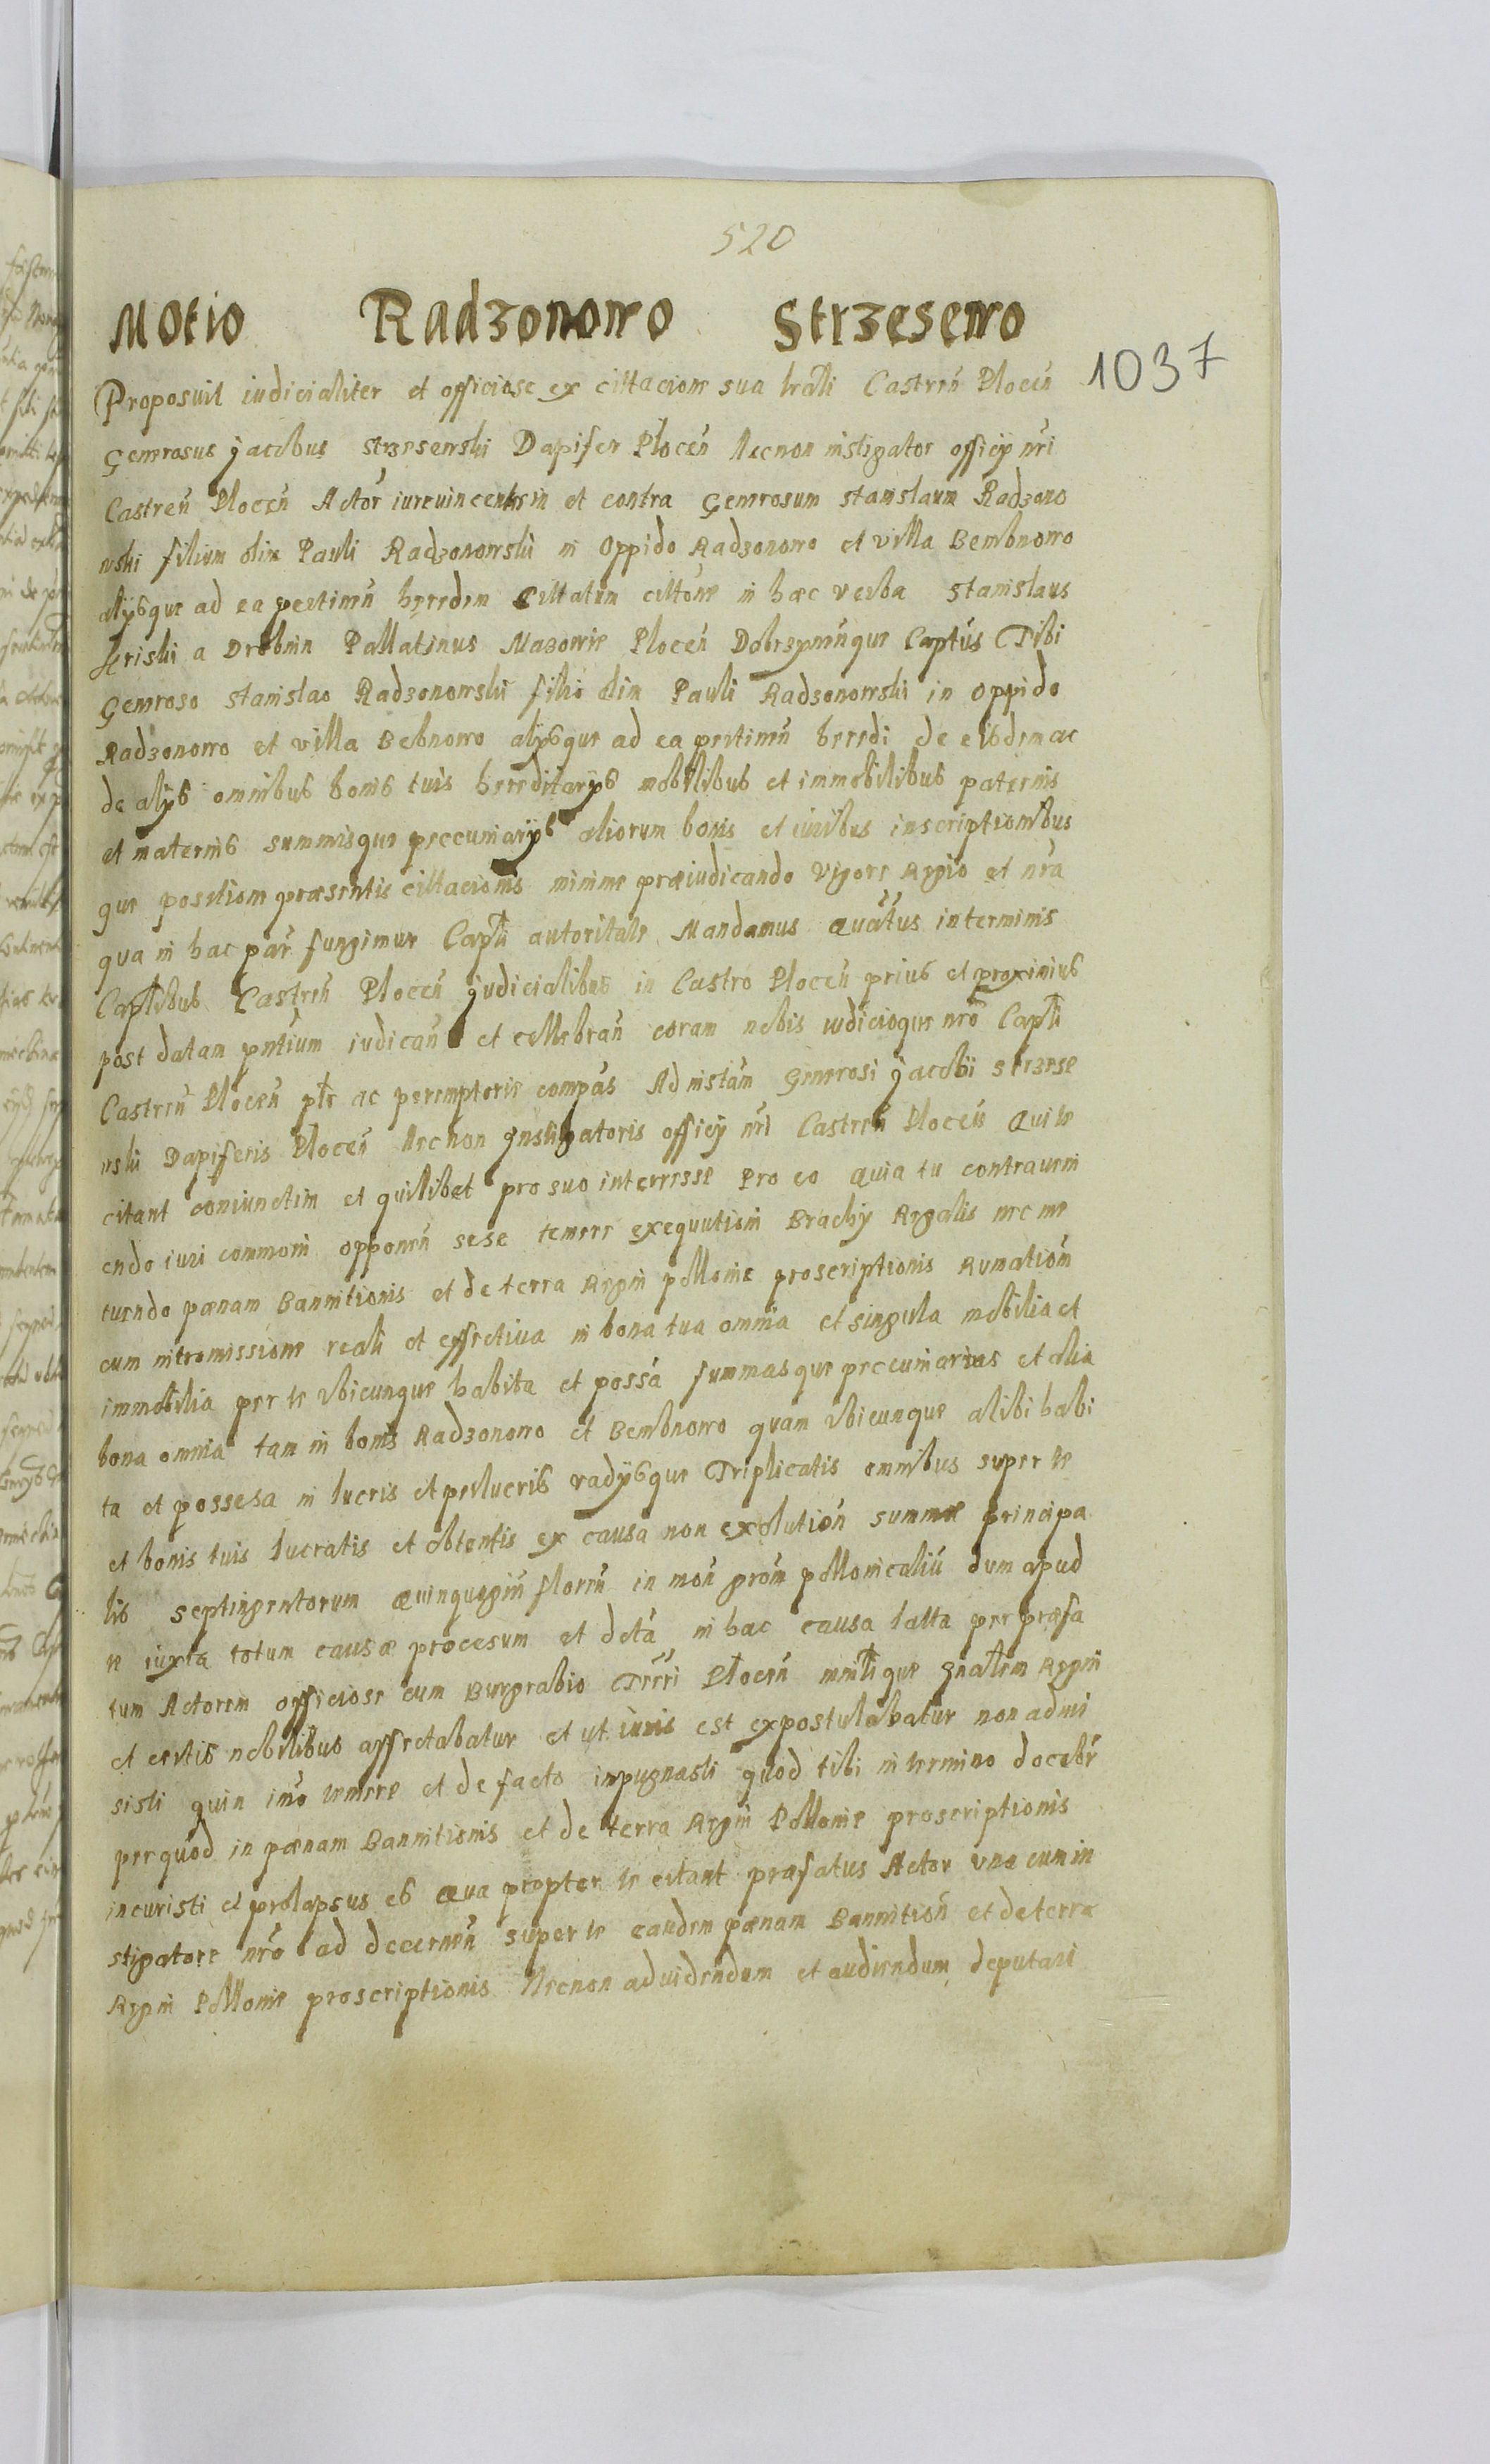 520
Motio Radzonowo Strzesewo
1037
Proposuit iudicialiter et officiose ex cittacione sua lrali Castren̄ Plocen̄
Generosus Jacobus Strzesewski Dapifer Plocen̄ Necnon instigator officÿ nr̄i
Castren̄ Plocen̄ Actor iurevincentes in et contra Generosum Stanislaum Radzono
wski filium olim Pauli Radzonowski in Oppido Radzonowo et villa Bembnowo
alÿsque ad ea pertinen̄ heredem Cittatum cittōne in hæc verba Stanislaus
a Drobnin Pallatinus Mazowie Plocen̄ Dobrzynen̄que Captus Tibi
Generoso Stanislao Radzonowski filio olim Pauli Radzonowski in Oppido
Radzonowo et villa Bebnowo alÿsque ad ea pertinen̄ heredi de eisdem ac
de alÿs omnibus bonis tuis hereditarÿs mobilibus et immobilibus paternis
et maternis summisque peccuniarÿs aliorum bonis et iuribus inscriptionibus
que positione præsentis cittacionis minime præiudicando Vigore Regio et nr̄a
qua in hac par̄ fungimur Capli autoritate Mandamus quātus in terminis
Caplibus Castren̄ Plocen̄ judicialibus in Castro Plocen̄ prius et proximius
post datam pn̄tium iudican̄ et cellebran̄ coram nobis iudicioque nr̄o Capli
Castren̄ Plocen̄ plr̄ ac peremptorie compās Ad instān Generosi Jacobi Strzese
wski Dapiferis Plocen̄ Necnon Instigatoris officÿ nr̄i Castren̄ Plocen̄ Qui te
citant coniunctim et quilibet pro suo interresse Pro eo quia tu contraveni
endo iuri commoni opponen̄ sese temere exequutioni Brachÿ Regalis nec me
tuendo pænam Bannitionis et de terra Regni pollonie proscriptionis Rumation̄
cum intromissione reali et effectiua in bona tua omnia et singula mobilia et
immobilia per te vbicunque habita et possā summasque peccuniarias et alia
bona omnia tam in bonis Radzonowo et Bembnowo quam vbicunque alibi habi
ta et possesa in lucris et perlucris vadÿsque Triplicatis omnibus super te
et bonis tuis lucratis et obtentis ex causa non exolution̄ summæ principa
lis septingentorum quinquagin̄ floren̄ in mon̄ grōm pollonicaliū dum apud
te iuxta totum causæ procesum et dctā in hac causa latta per præfa
tum Actorem officiose cum Burgrabio Plocen̄ gnalem Regni
et certis nobilibus affectabatur et ut iuris est expostulabatur non admi
sisti quin imo temere et de facto inpugnasti quod tibi in termino docebr̄
per quod in pænam Bannitionis et de terra Regni Pollonie proscriptionis
incuristi et prolapsus es qua propter te citant præfatus Actor vna cum in
stigatore nr̄o ad decernen̄ super te eandem pænam Bannition̄ et de terra
Regni Pollonie proscriptionis Necnon ad videndum et audiendum deputari